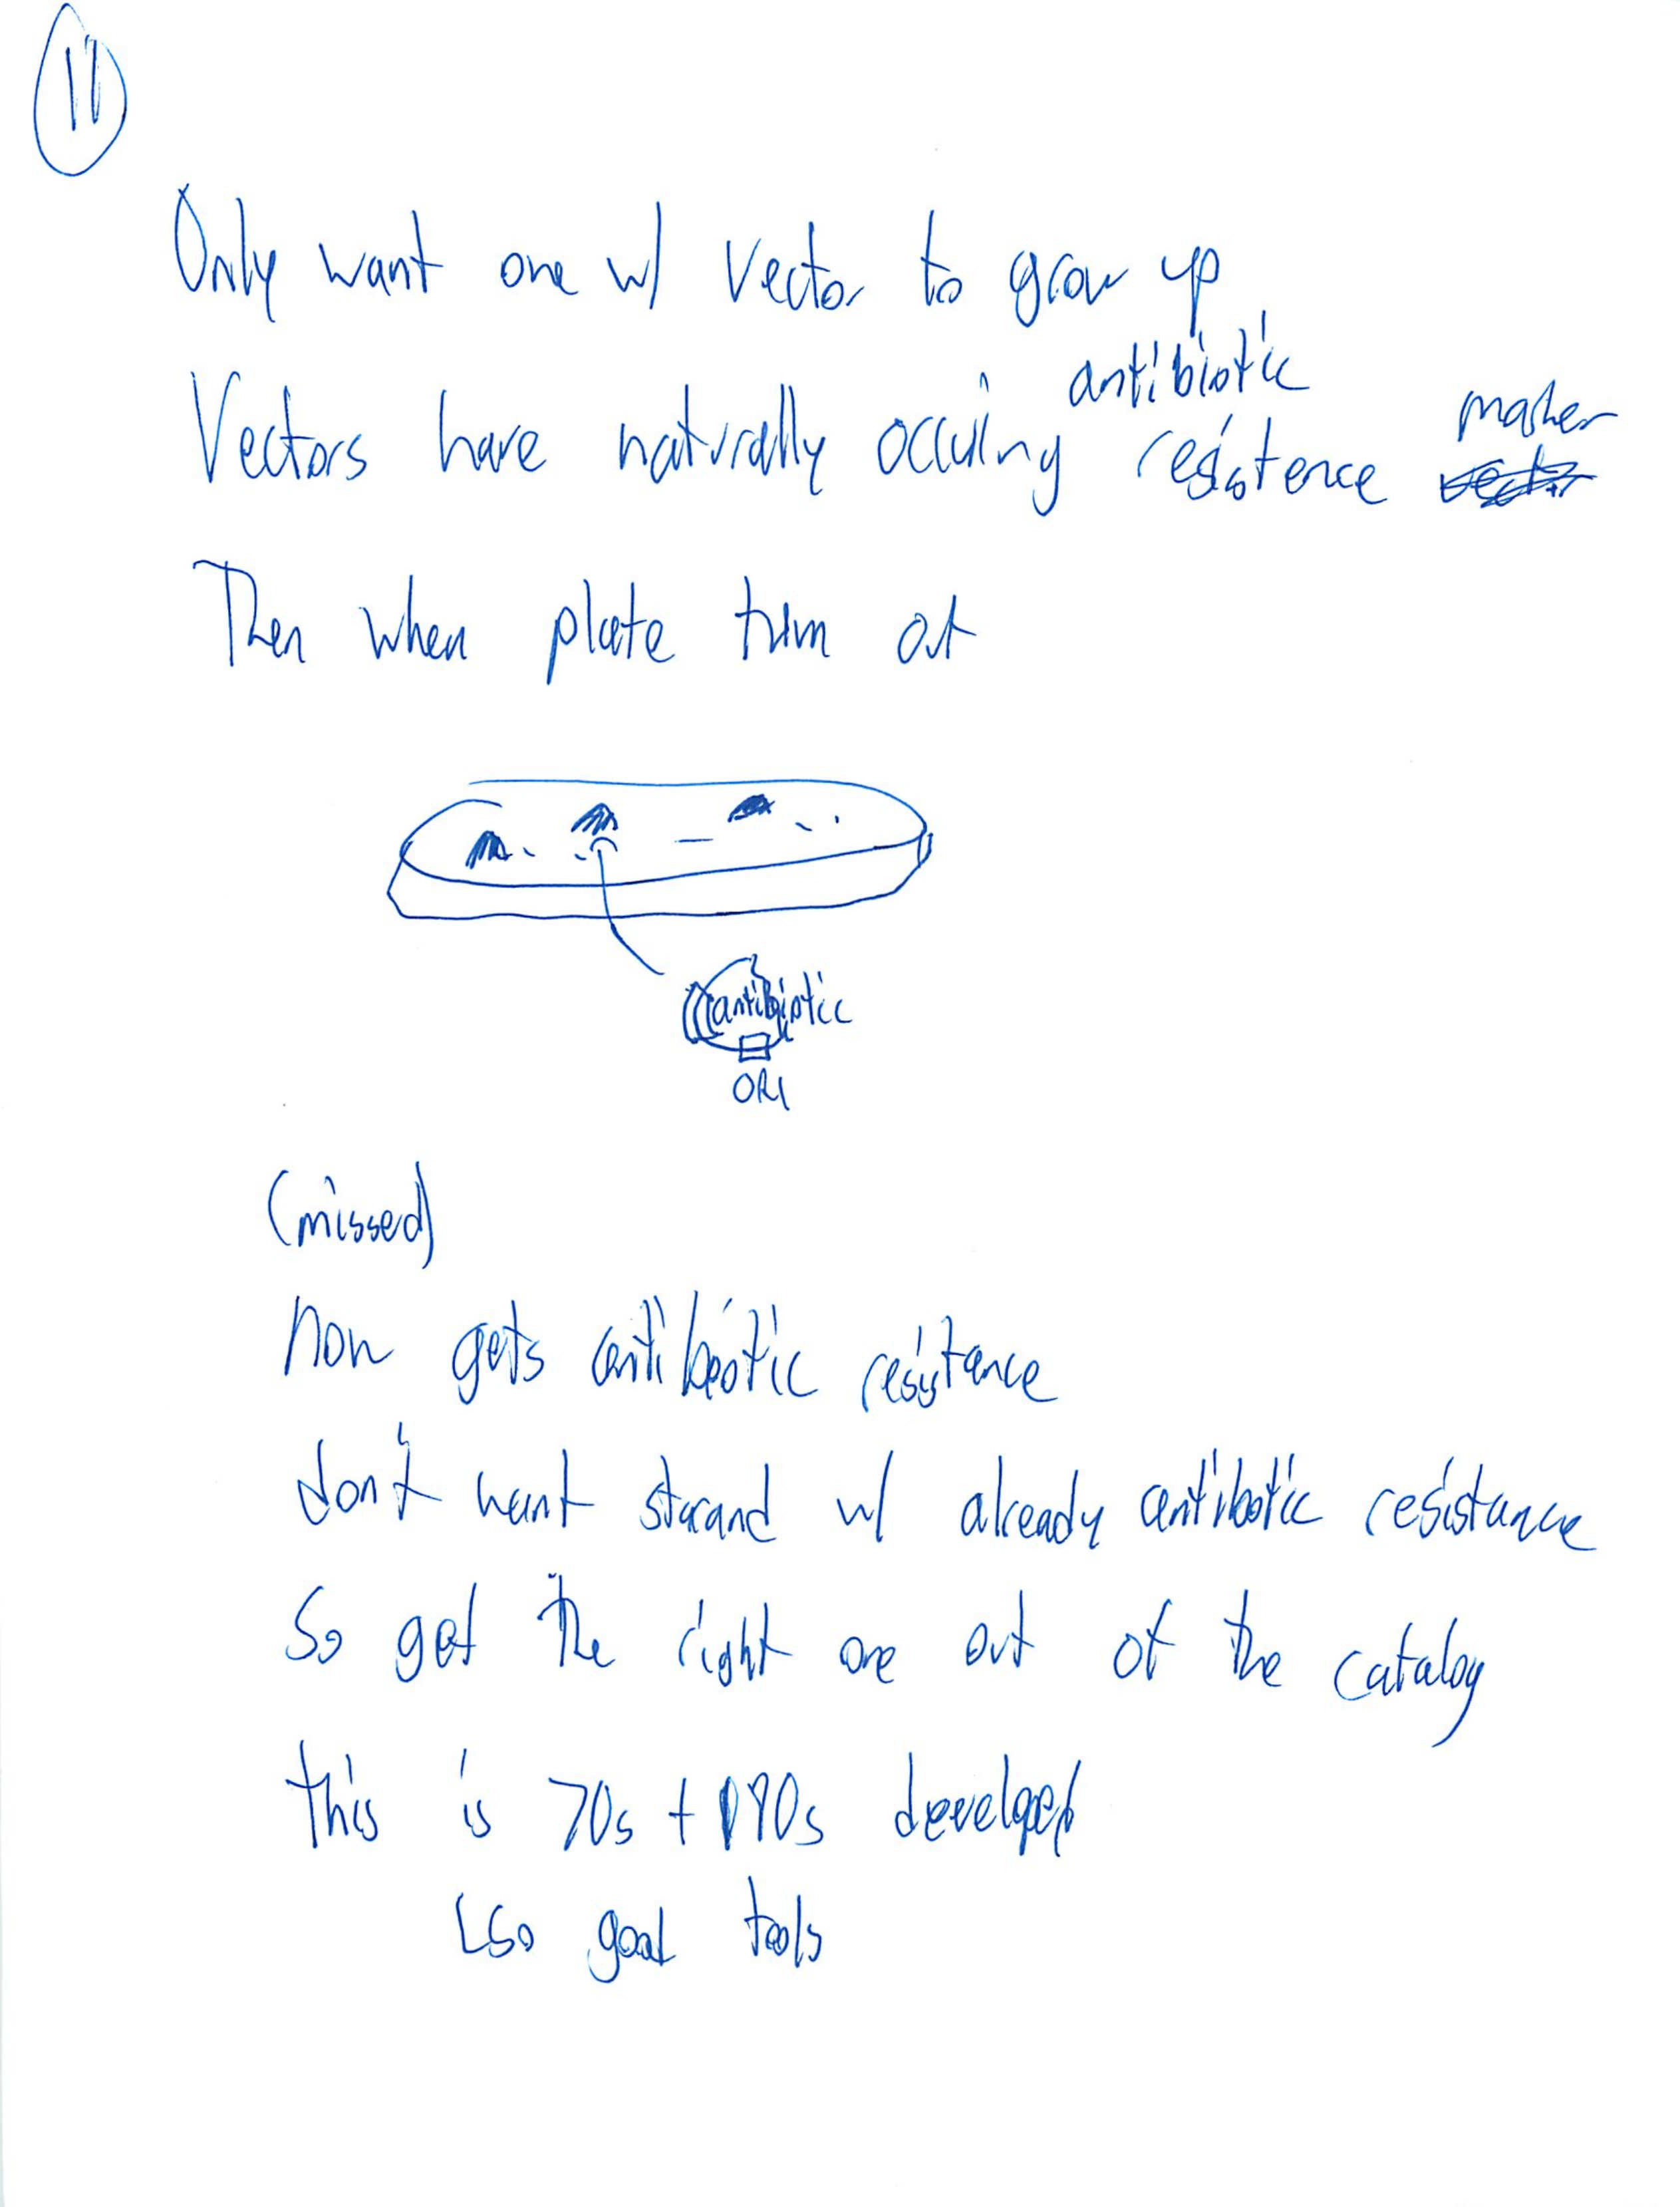 11
Only want one w/ vector to grow up
Vectors have naturally occuring antibiotic resistence marker
Then when plate them out
antibiotic
ORI
(missed)
Now gets antibiotic resistance
don't want straand w/ already antibiotic resistance
So get the right one out of the catalog
this is 70s + 80s developed
so good tools